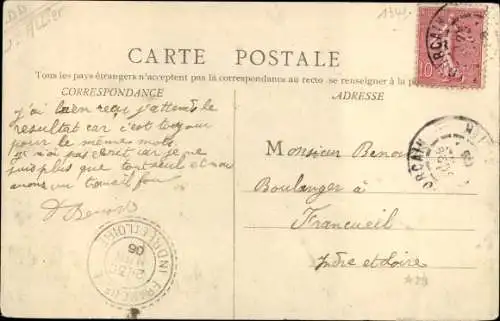 CARTE POSTALE
Tous les pays étrangers n'acceptent pas la correspondance au recto se renseigner à la
CORRESPONDANCE
ADRESSE
j'ai bien reçu j'attends le
resultat car c'est toujour
pour le mêmes mots
je n'ai pas ecrit car je ne
suis plus que tout seul et nou
avons un travail fou
Benoist
Monsieur Benoist
Boulanger à
Francueil
Indre et Loire
10
06